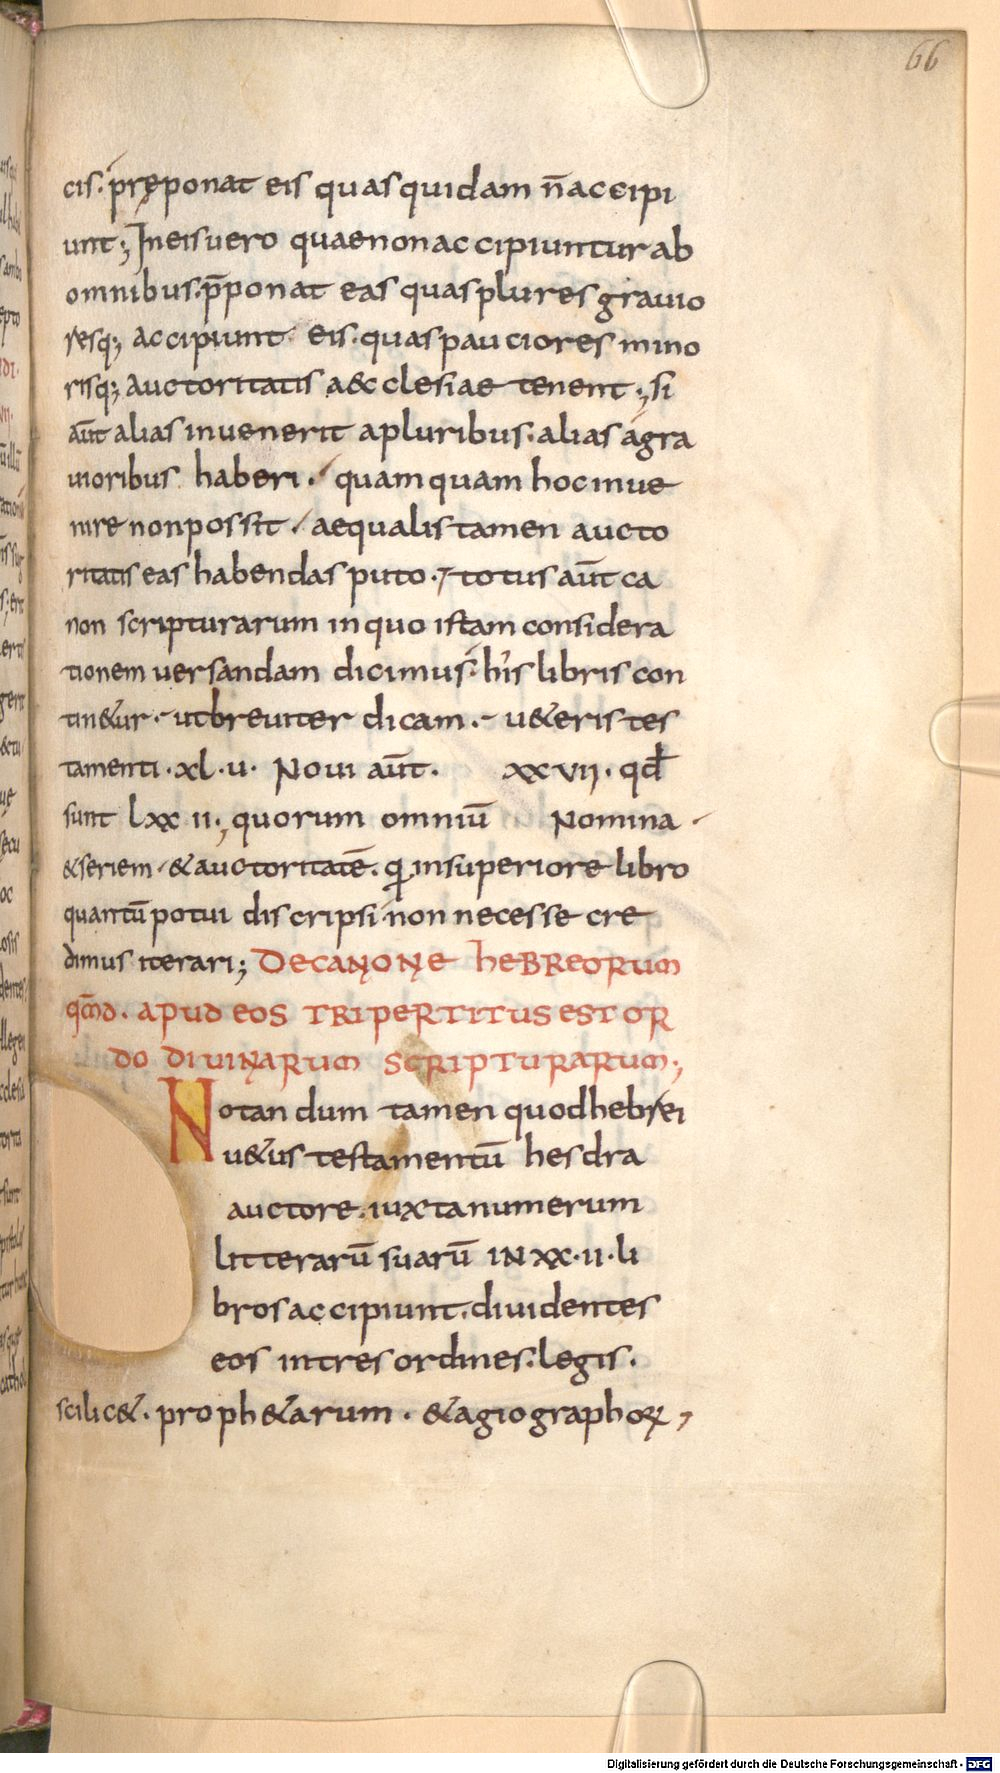 66
cis. pręponat eis quas quidam n̄ accipi
unt; In eis uero quae non accipiuntur ab
omnibus. p̄ponat eas quas plures grauio
resq; accipiunt eis. quas pauciores mino
risq; auctoritatis aecclesiae tenent; si
aūt alias inuenerit a pluribus. alias a gra
uioribus haberi. quam quam hoc inue
nire non possit. aequalis tamen aucto
ritatis eas habendas puto. totus aūt ca
non scripturarum in quo istam considera
tionem uersandam dicimus. his libris con
tin&ur. ut breuiter dicam. u&eris tes
tamenti. xl.u. Noui aūt. xxvii. qđ
sunt lxxii; quorum omniū Nomina
& seriem & auctoritatē. q in superiore libro
quantū potui discripsi non necesse cre
dimus iterari; DE CANONE HEBREORUM
qm̄d. APUD EOS TRIPERTITUS EST OR
DO DIVINARUM SCRIPTURARUM;
Notandum tamen quod hebrei
u&us testamentū hesdra
auctore. iuxta numerum
litterarū suarū IN xx.ii. li
bros accipiunt. diuidentes
eos in tres ordines. legis.
scilic&. proph&arum. & agiographoꝝ,
Digitalisierung gefördert durch die Deutsche Forschungsgemeinschaft - DFG